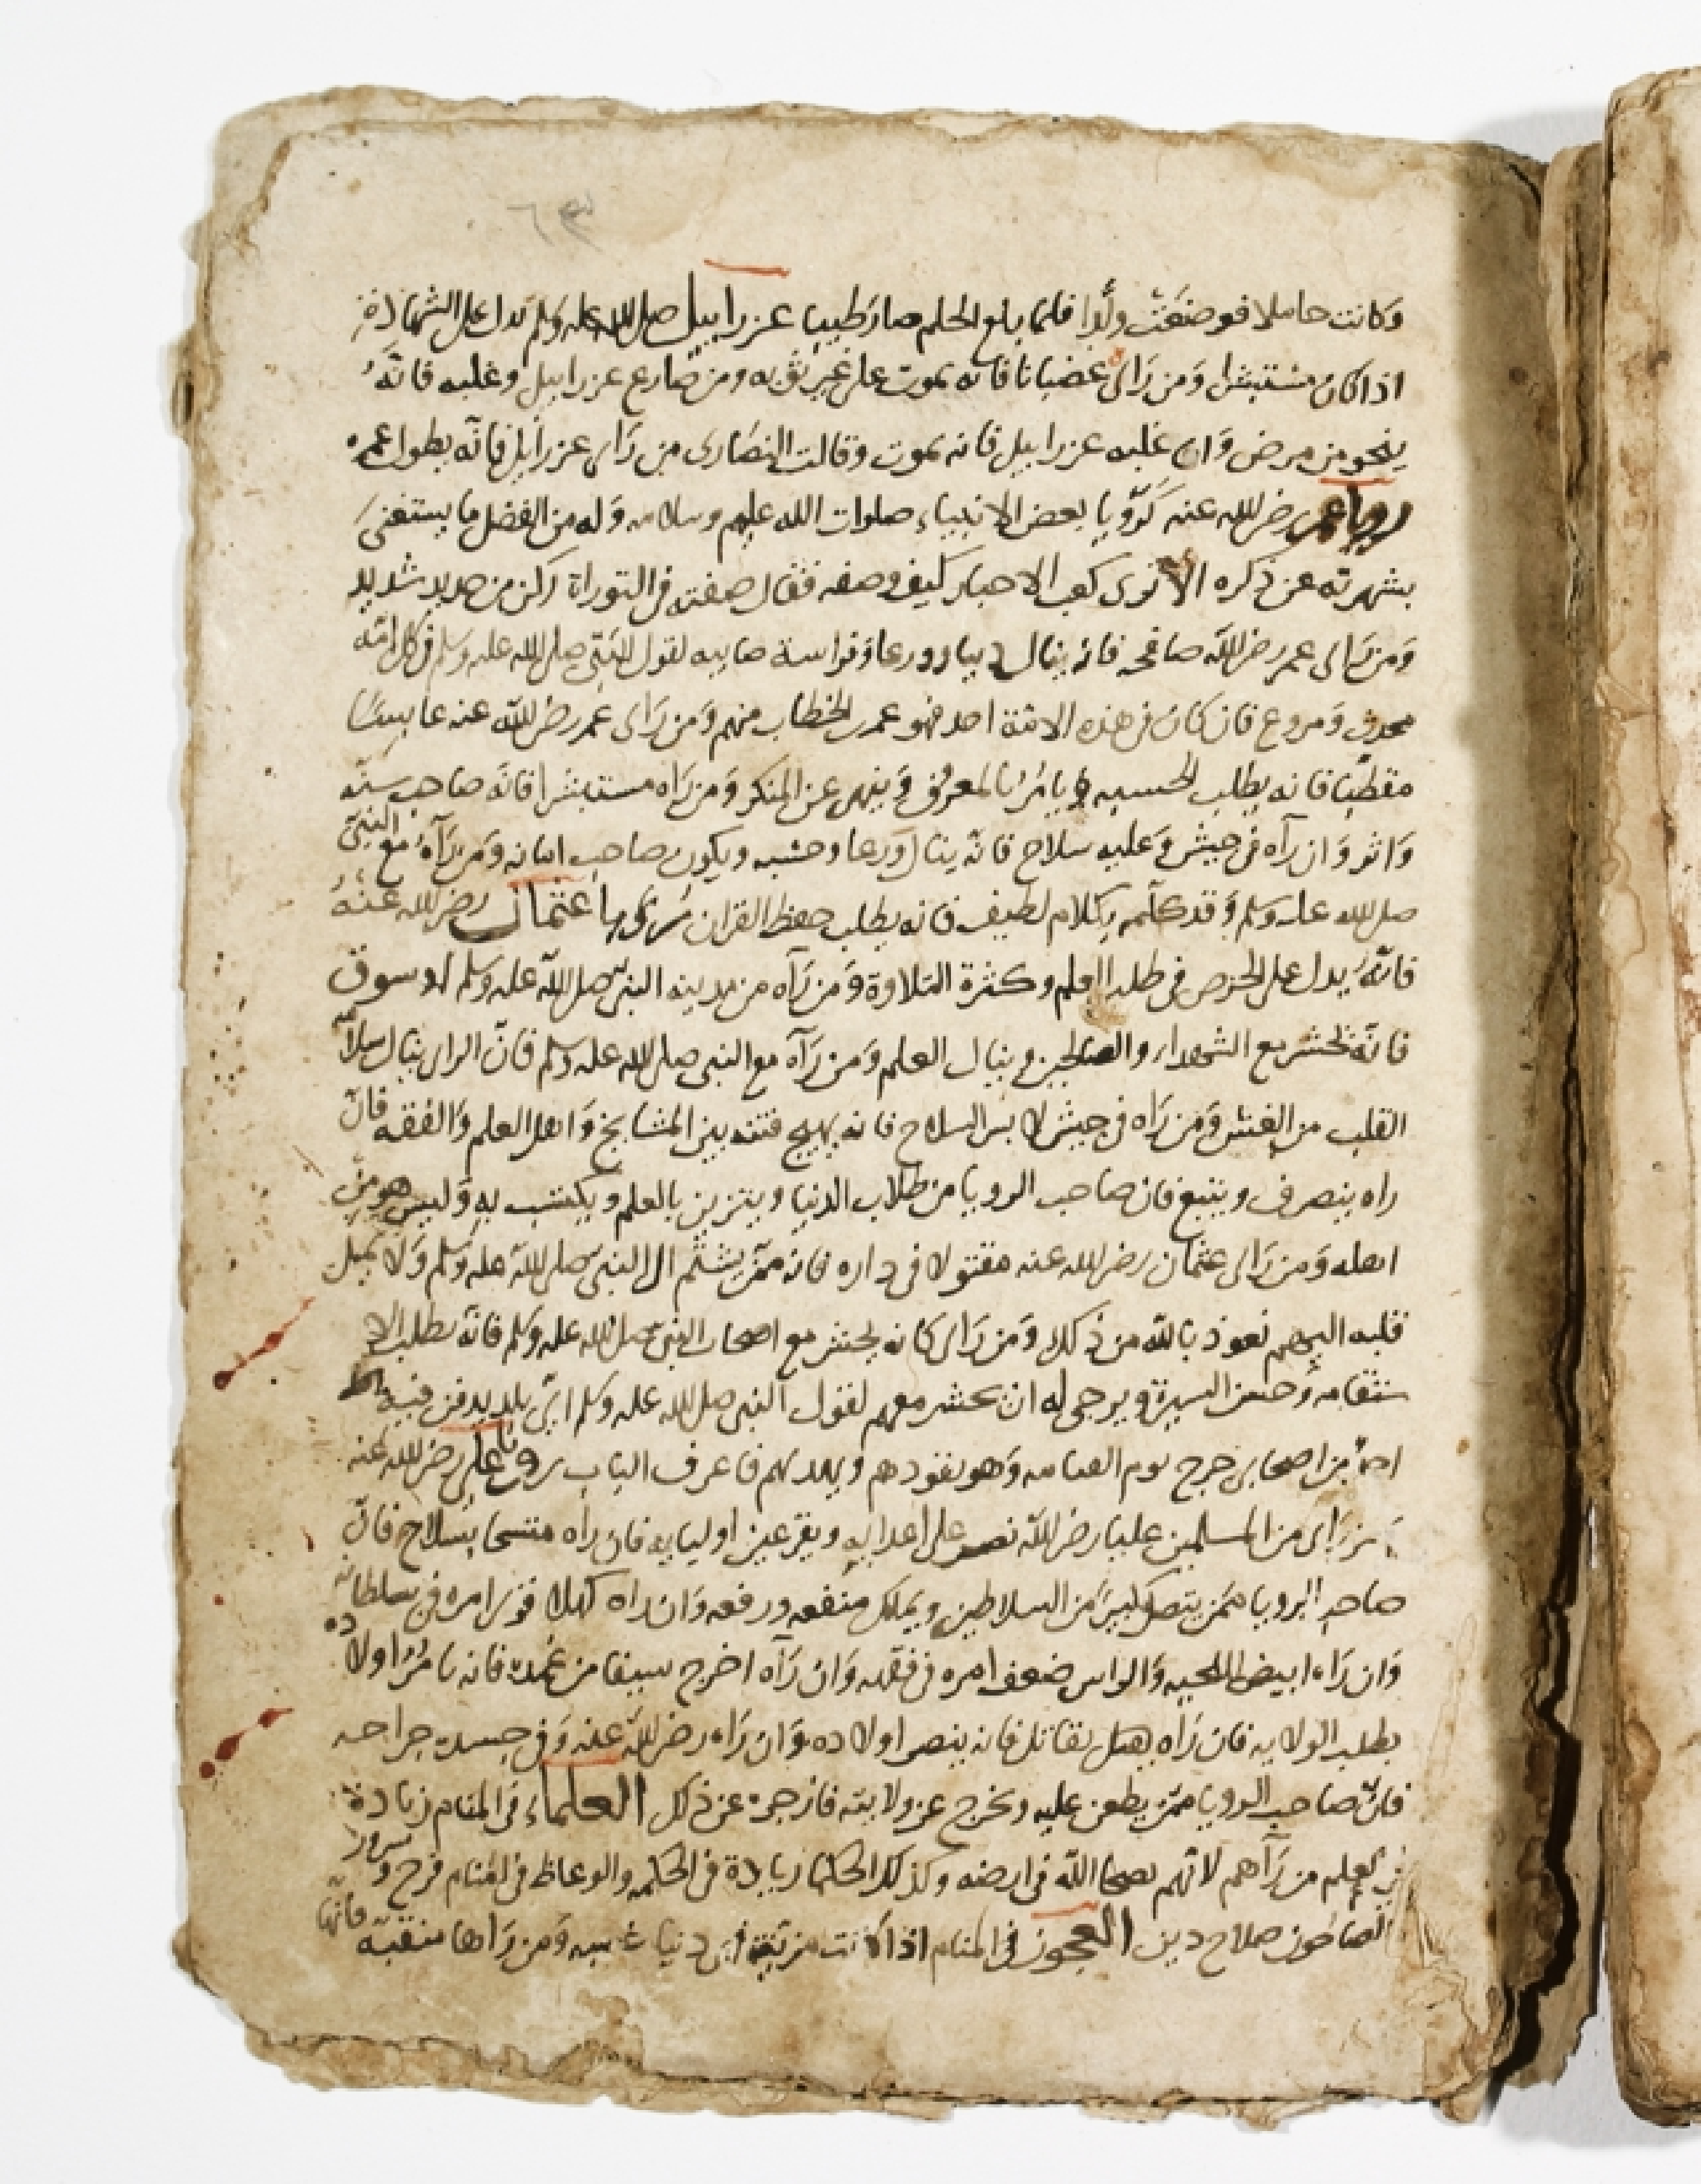 ٦٣
وكانت حاملا فوضعت ولدا فلما بلغ الحلم صار طبيبا عزراييل صلى الله عليه وسلم تدل على الشهادة
اذا كان مستبشرا ومن راى غضبانا فانه يموت على غير توبه ومن صارع عزراييل وغلبه فانه
ينجو من مرض وان غلبه عزراييل فانه يموت وقالت النصارى من راى عزراييل فانه يطول عمره
رويا عمر رضى الله عنه كرويا بعض الانبياء صلوات الله عليهم وسلامه وله من الفضل ما يستغنى
بشهرته عن ذكره الا ترى كعب الاحبار كيف وصفه فقال صفته فى التوراة ركن من حديد شديد
ومن راى عمر رضى الله صافحه فانه ينال دينا وورعا وفراسة صايبه لقول النبى صلى الله عليه وسلم فى كل امه
محدث ومروع فان كان فى هذه الامة احد فهو عمر الخطاب منهم ومن راى عمر رضى الله عنه عابسا
مقطبا فانه يطلب الحسبه و يامر بالمعروف وينهى عن المنكر ومن راه مستبشرا فانه صاحب سنه
واثر وان رآه فى جيش وعليه سلاح فانه ينال ورعا وحسبه ويكون صاحب امانه ومن رآه مع النبى
صلى الله عليه وسلم وقد كلمه بكلام لطيف فانه يطلب حفظ القران رويا عثمان رضى الله عنه
فانه يدل على الحرص فى طلب العلم وكثرة التلاوة ومن رآه من مدينه النبى صلى الله عليه وسلم او سوق
فانه يحشر مع الشهداء والصالحين وينال العلم ومن رآه مع النبى صلى الله عليه وسلم فان الراى ينال سلامه
القلب من الغش ومن راه فى جيش لابس السلاح فانه يهيج فتنه بين المشايخ واهل العلم والفقه فان
راه ينصرف ويتبع فان صاحب الرويا من طلاب الدنيا ويتزين بالعلم ويكتسب به وليس هو من
اهله ومن راى عثمان رضى الله عنه مقتولا فى داره فانه ممن يشتم ال النبى صلى الله عليه وسلم ولا يميل
قلبه اليهم نعوذ بالله من ذلك ومن راى كانه يحشر مع اصحاب النبى صلى الله عليه وسلم فانه يطلب الا
ستقامه وحسن السيرة ويرجى له ان يحشر معهم لقول النبى صلى الله عليه وسلم اى بلد يدفن فيه
احد من اصحابى خرج يوم القيامه وهو يقودهم ويهديهم فاعرف الباب رويا على رضى الله عنه
من راى من المسلمين عليا رضى الله نصر على اعدايه ويقر عين اوليايه فان راه متسحا بسلاح فان
صاحب الرويا ممن يتصل كبيرا من السلاطين ويملك منفعه ورفعه وان راه كهلا قوى امره فى سلطانه
وان راه ابيض اللحيه والراس ضعف امره فى فقهه وان رآه اخرج سيفا من غمده فانه يامر اولاده
بطلب الولايه فان رآه يقاتل فانه ينصر اولاده وان راه رضى الله عنه وفى جسده جراحه
فان صاحب الرويا ممن يطعن عليه ويخرج عن ولايته فازجره عن ذلك العلماء فى المنام زيادة
فى العلم من رآهم لانهم نصحا الله فى ارضه وكذلك الحكما زيادة فى الحكمه والوعاظ فى المنام فرح وسرور
الصالحون صلاح دين العجوز فى المنام اذا كانت مزينه دنيا ومن راها منقبه فانها